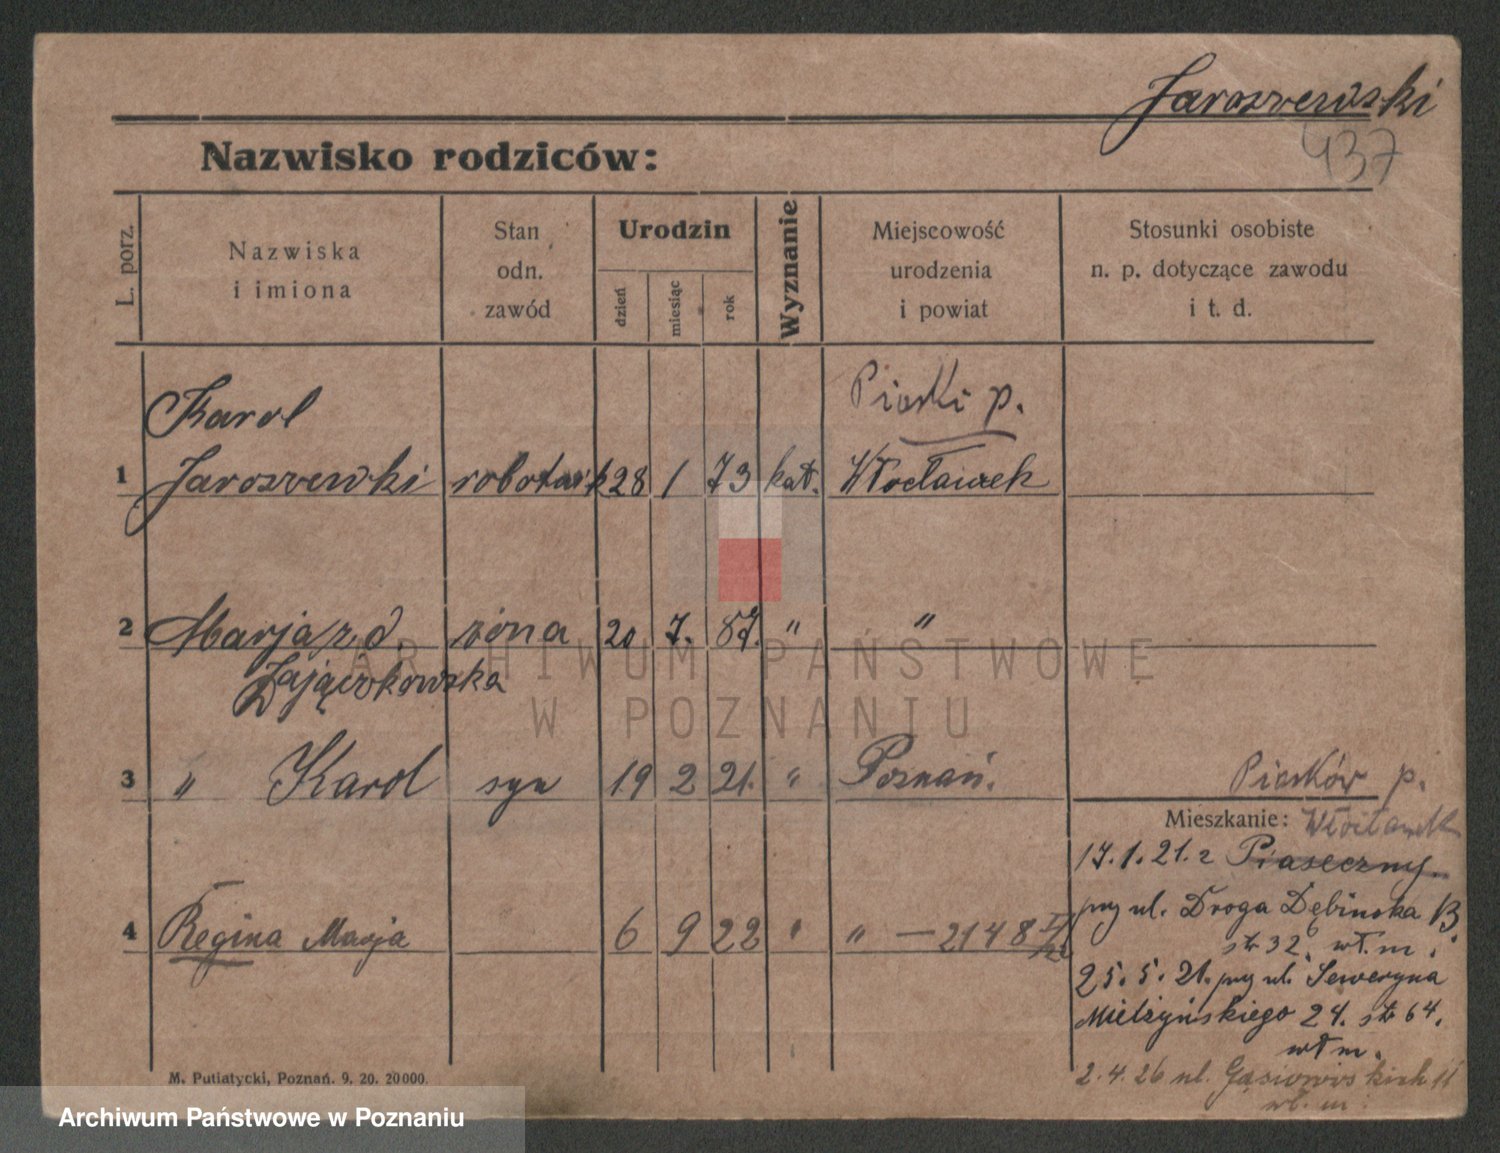 Jaroszewski
437
Nazwisko rodziców:
L. porz.
Nazwiska
i imiona
Stan
odn.
zawód
Urodzin
dzień
miesiąc
rok
Wyznanie
Miejscowość
urodzenia
i powiat
Stosunki osobiste
n. p. dotyczące zawodu
i t. d.
Karol Piaski p.
1 Jaroszewski robotnik 28 1 73 kat. Włocławek
2 Marja z d żona 20 7. 87. " "
Zajączkowska
3 " Karol syn 19 2 21. " Poznań.
Piasków p.
Mieszkanie: Włocławek
17.1.21. z Piaseczny
przy ul. Droga Dębinska B.
str 32, wł. m.
4 Regina Marja 6 9 22 " " — 2148
25.5.21. przy ul. Seweryna
Mielżyńskiego 24. str 64.
wł m.
2.4.26 ul. Gąsiorowskich 11
wł. m.
M. Putiatycki, Poznań. 9. 20. 20000.
ARCHIWUM PAŃSTWOWE
W POZNANIU
Archiwum Państwowe w Poznaniu